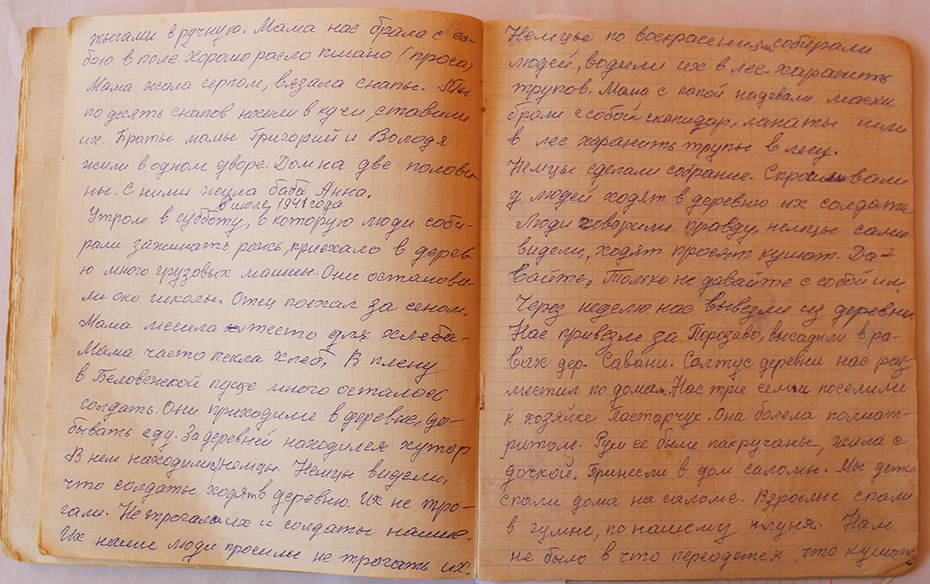 тьюгами в ручную. Мама нас брала с со-
бою в поле. Хорошо расло пшано (проса)
Мама жала серпом, вязала снапы. Мы
по десять снапов носили в кучи, ставили
их. Браты мамы Григорий и Володя
жили в одном дворе. Дом на две полови-
ны. С ними жила баба Анна.
в июле, 1941 года
Утром в субботу, в которую люди соби-
рали зажинать рожь, приехало в дерев
ю много грузовых машын. Они останови
ли око школы. Отец поехал за сеном.
Мама месила тесто для хлеба.
Мама часто пекла хлеб. В плену
в Беловежской пуще много осталось
солдать. Они приходили в деревню, до-
бывать еду. За деревней находился хутор
В нем находились немцы. Немцы видели,
что солдаты ходят в деревню. Их не тро-
гали. Не трогали их и солдаты наших.
Их наши люди просили не трогать их.
Немцые по воскрасениям собирали
людей, водили их в лес харанить
трупов. Мама с папой надевали маски
брали с собой скапидар, лапаты или
в лес харанить трупы в лесу.
Немцые сделали собрание. Спрошывали
у людей ходят в деревню их солдаты
Люди говорили правду, немцые сами
видели, ходят просят кушат. Да-
вайте, только не давайте с собой им.
Через неделю нас вывезли из деревни
Нас привезли за Порозаво, высадили в ра-
вах дер. Савани. Солтус деревни нас раз
местил по домам. Нас три семьи поселили
к хозяйке Постарчук. Она болела полиат-
ритом. Руки ее были пакручаные, жила с
дочкой. Принесли в дом саломы. Мы дети
спали дома на саломе. Взрослые спали
в гумни, по нашому клуня. Нам
не было в что переодется, что кушать